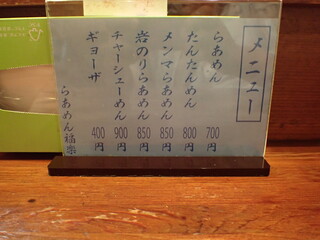 メニュー
らあめん 700円
たんたんめん 800円
メンマらあめん 850円
岩のりらあめん 850円
チャーシューめん 900円
ギョーザ 400円
らあめん福楽